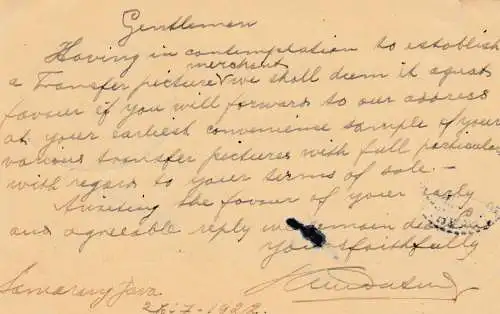 Gentlemen
Having in contemplation to establish
merchant
a Transfer picture we shall deem it a great
favour if you will forward to our address
at your earliest convenience sample of your
various transfer pictures with full particular
with regard to your terms of sale.-
Awaiting the favour of your early
and agreeable reply we remain
Yours faithfully
Samarang Java